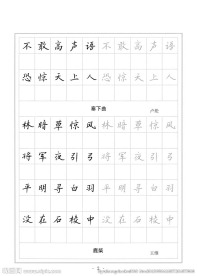 不敢高声语不敢高声语
恐惊天上人恐惊天上人
塞下曲
卢纶
林暗草惊风林暗草惊风
将军夜引弓将军夜引弓
平明寻白羽平明寻白羽
没在石棱中没在石棱中
鹿柴
王维